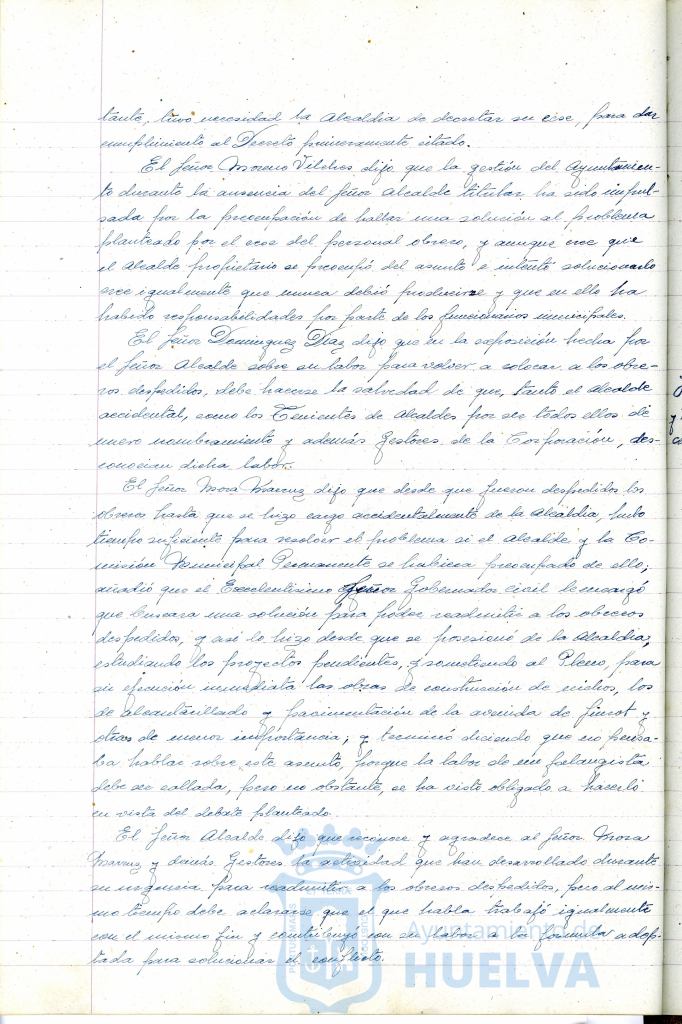 tante, tuvo necesidad la Alcaldia de decretar su cese, para dar
cumplimiento al Decreto primeramente citado.
El Señor Moreno Vilches dijo que la gestión del Ayuntamien-
to durante la ausencia del Señor Alcalde titular ha sido impul-
sada por la preocupación de hallar una solución al problema
planteado por el cese del personal obrero, y aunque cree que
el Alcalde propietario se preocupó del asunto e intentó solucionarlo
cree igualmente que nunca debió producirse y que en ello ha
habido responsabilidades por parte de los funcionarios municipales.
El Señor Dominguez Diaz dijo que en la exposición hecha por
el Señor Alcalde sobre su labor para volver a colocar a los obre-
ros despedidos, debe hacerse la salvedad de que, tanto el Alcalde
accidental, como los Tenientes de Alcaldes por ser todos ellos de
nuevo nombramiento y además Gestores de la Corporación, des-
conocian dicha labor.
El Señor Mora Marruz dijo que desde que fueron despedidos los
obreros hasta que se hizo cargo accidentalmente de la Alcaldia, hubo
tiempo suficiente para resolver el problema si el Alcalde y la Co-
misión Municipal Permanente se hubiera preocupado de ello;
añadió que el Excelentisimo Señor Gobernador civil le encargó
que buscara una solución para poder readmitir a los obreros
despedidos, y asi lo hizo desde que se posesionó de la Alcaldia,
estudiando los proyectos pendientes, y sometiendo al Pleno, para
su ejecución inmediata las obras de construcción de nichos, los
de alcantarillado y pavimentación de la avenida de y
otras de menor importancia; y terminó diciendo que no pensa-
ba hablar sobre este asunto, porque la labor de un falangista
debe ser callada, pero no obstante, se ha visto obligado a hacerlo
en vista del debate planteado.
El Señor Alcalde dijo que reconoce y agradece al Señor Mora
Marruz y demás Gestores la actividad que han desarrollado durante
su para readmitir a los obreros despedidos, pero al mis-
mo tiempo debe aclararse que el que habla trabajó igualmente
con el mismo fin y contribuyó con su labor a la formula adop-
tada para solucionar el conflicto.
Ayuntamiento de
HUELVA